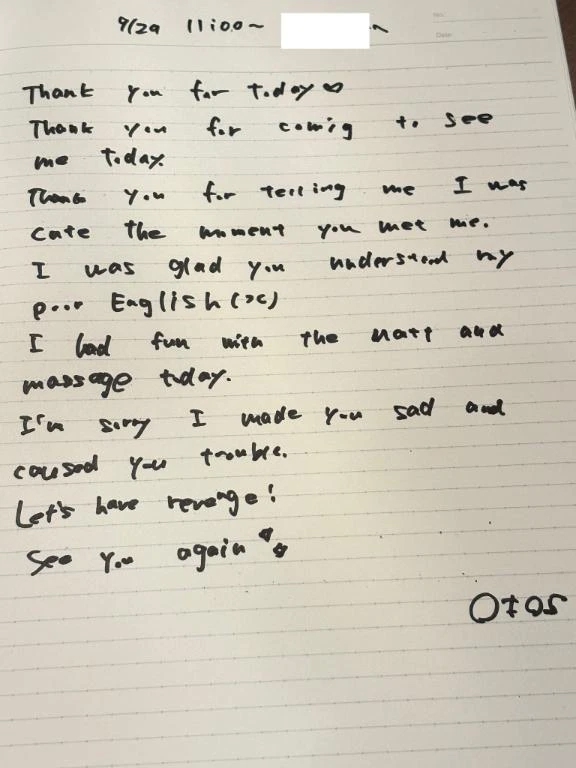 9/29 11:00~
No.
Date
Thank you for today♡
Thank you for comig to see
me today.
Thank you for telling me I was
cute the moment you met me.
I was glad you understand my
poor English (><)
I had fun with the and
massage today.
I'm sorry I made you sad and
caused you trouble.
Let's have revenge!
See you again